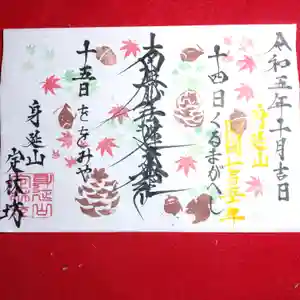 令和五年十月吉日
身延山
十四日 くるまがへし
南無妙法蓮華経
十五日 ををみや
身延山
定林坊